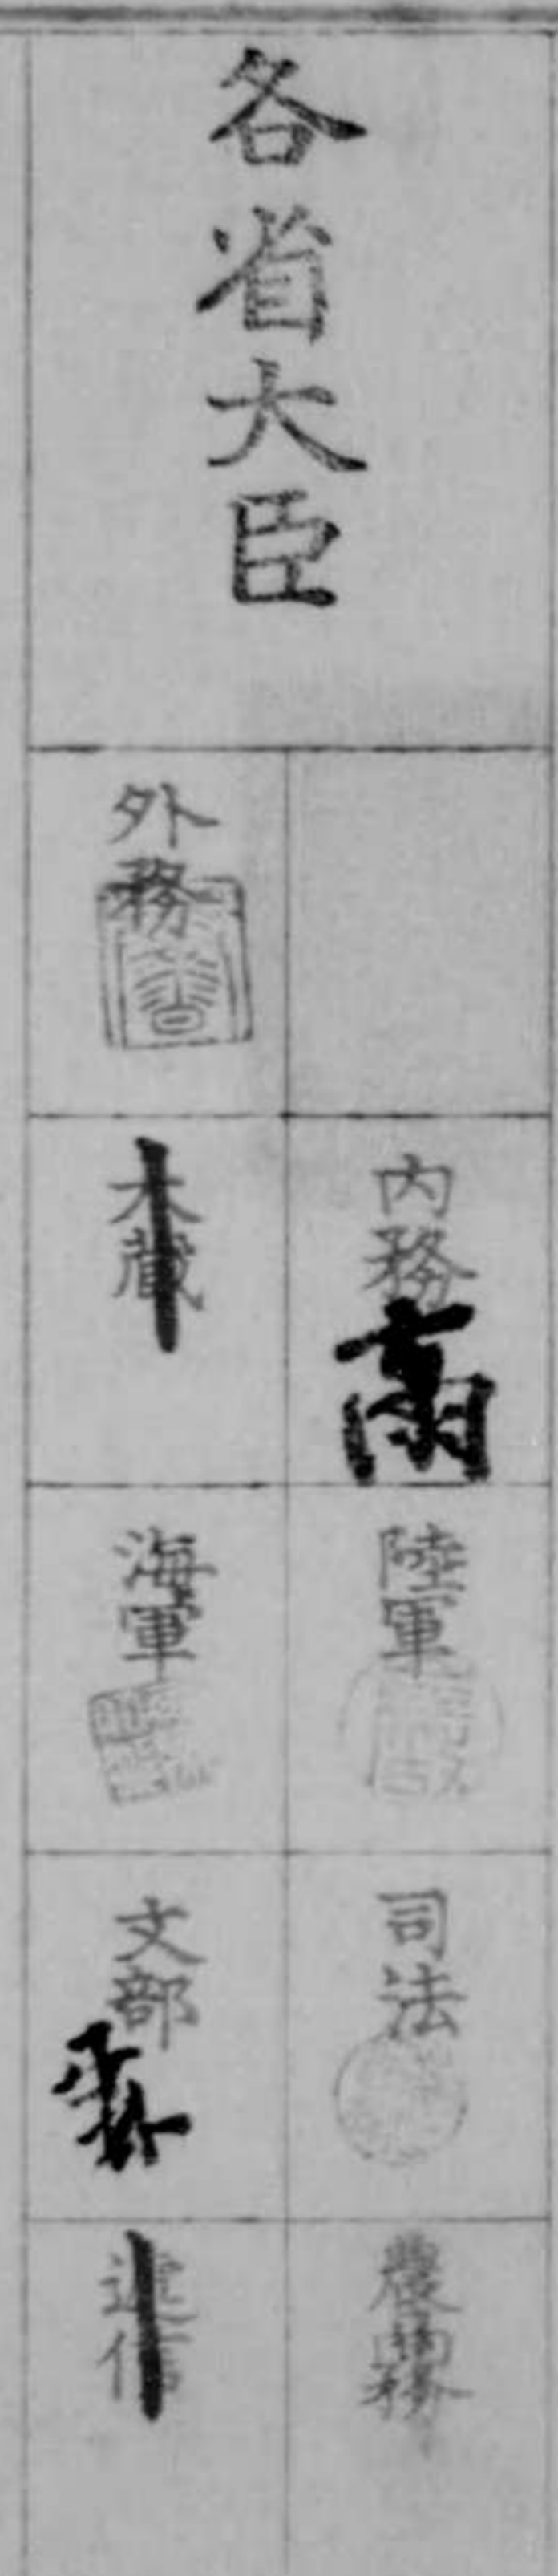 各省大臣
內務
陸軍
司法
農商務
外務
大蔵
海軍
文部
遞信